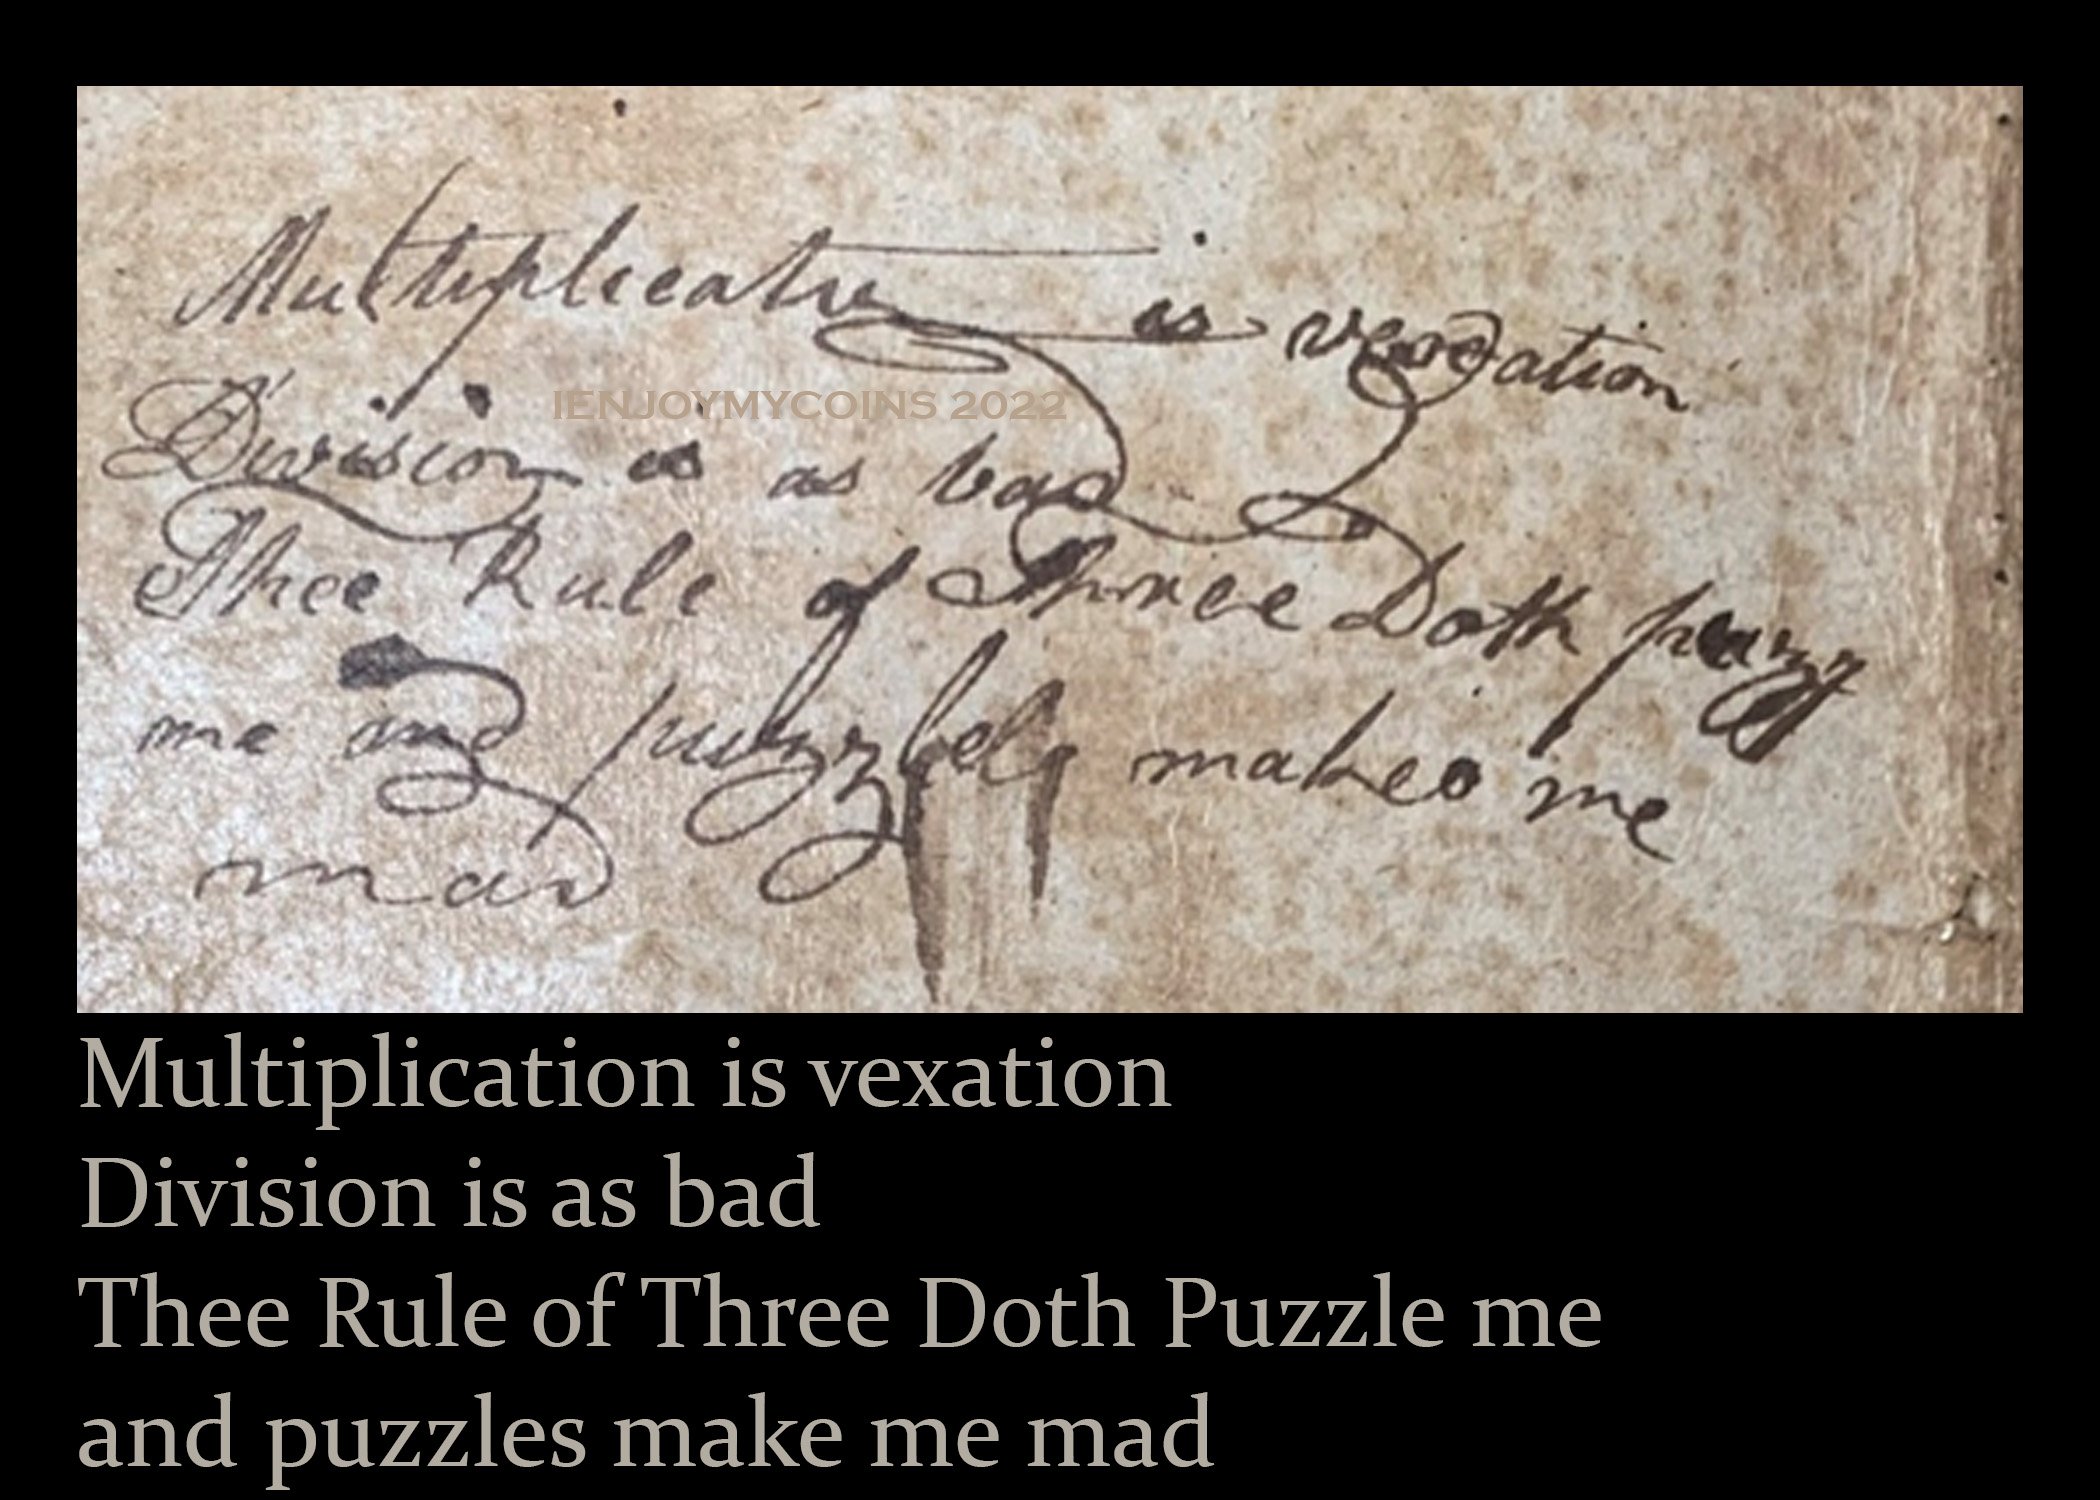 Multiplicatio is vexation
IENJOYMYCOINS 2022
Division is as bad
Thee Rule of Three Doth puzz
me and puzzels makes me
mad
Multiplication is vexation
Division is as bad
Thee Rule of Three Doth Puzzle me
and puzzles make me mad